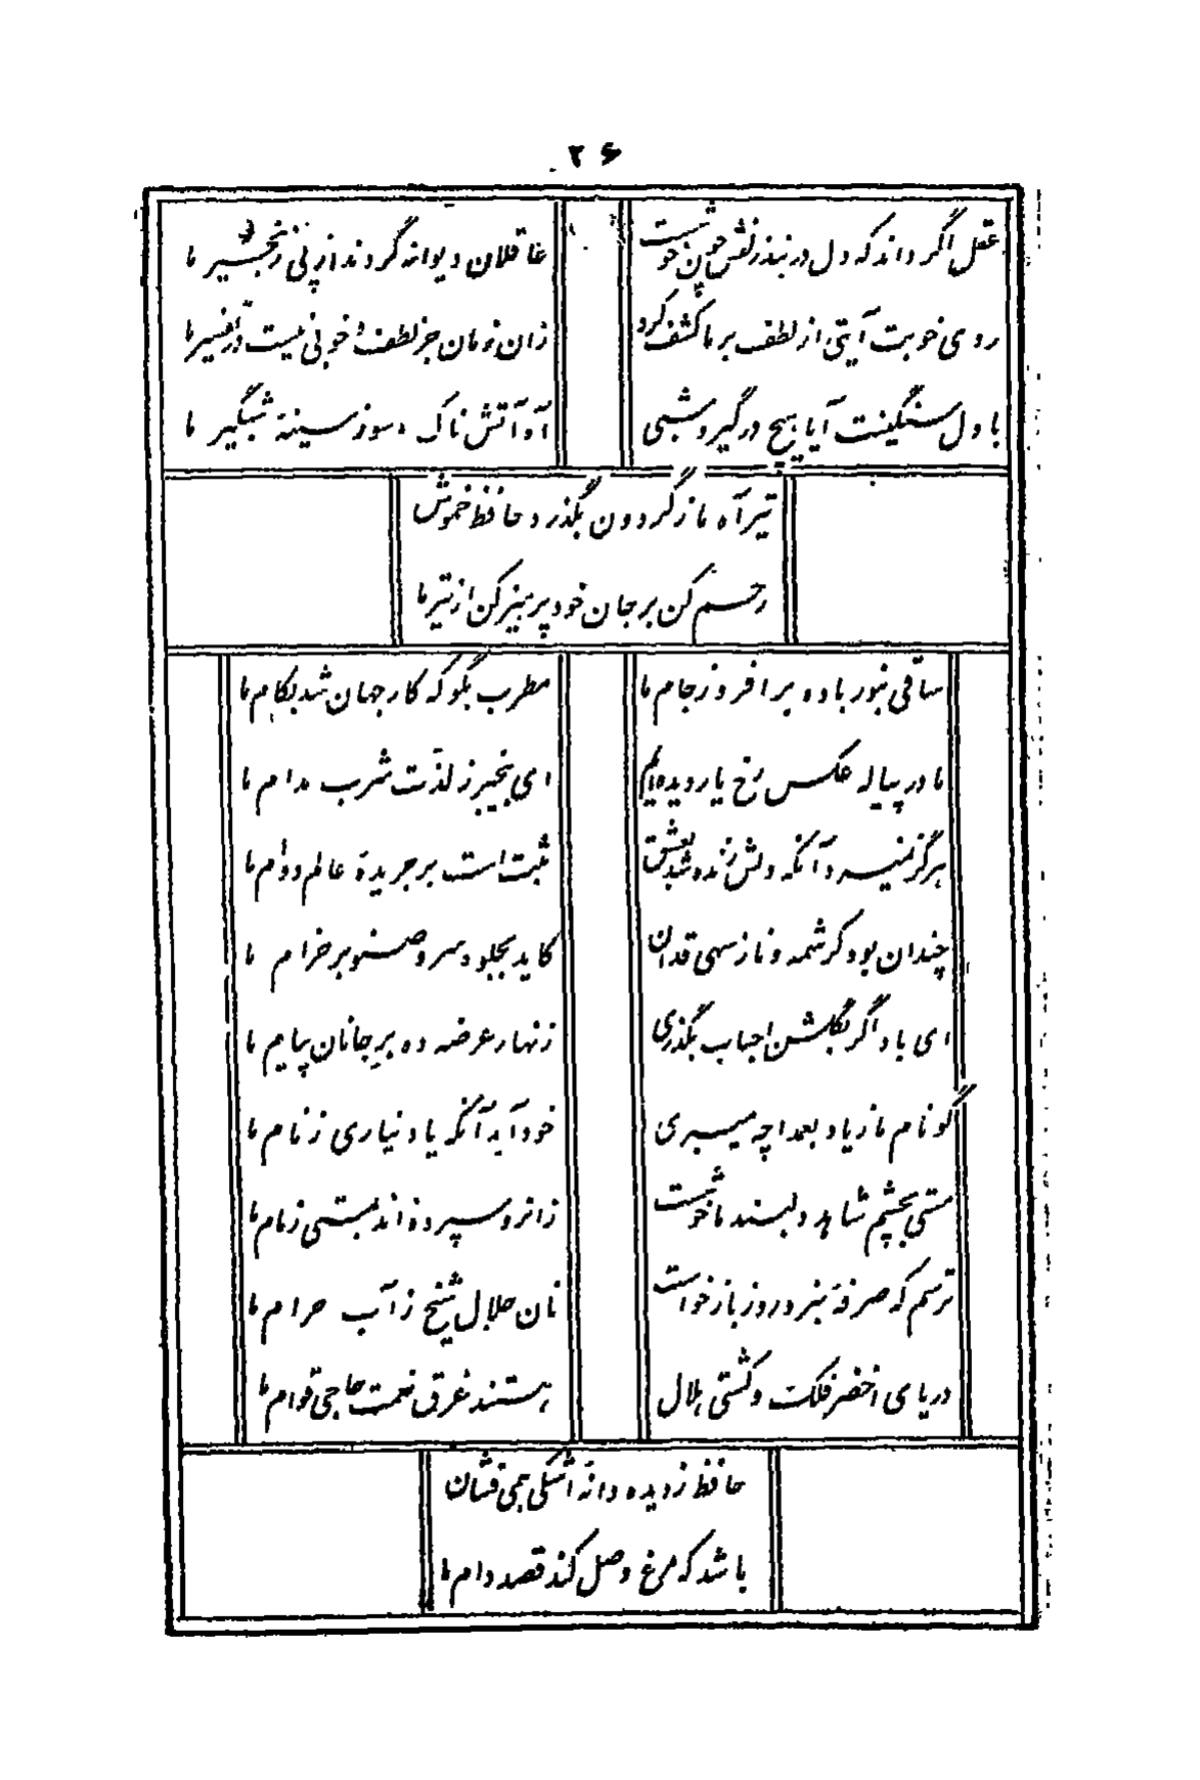 ۲۶
عقل اگر داند که دل در بند زلفش چون خوشست
عاقلان دیوانه گردند از پی زنجیر ما
روی خوبت آیتی از لطف بر ما کشف کرد
زان زمان جز لطف و خوبی نیست در تفسیر ما
با دل سنگینت آیا هیچ درگیرد شبی
آه آتش ناک و سوز سینهٔ شبگیر ما
تیر آه ما ز گردون بگذرد حافظ خموش
رحم کن بر جان خود پرهیز کن از تیر ما
ساقی بنور باده برافروز جام ما
مطرب بگو که کار جهان شد بکام ما
ما در پیاله عکس رخ یار دیده‌ایم
ای بیخبر ز لذّت شرب مدام ما
هرگز نمیرد آنکه دلش زنده شد بعشق
ثبت است بر جریدهٔ عالم دوام ما
چندان بود کرشمه و ناز سهی قدان
کاید بجلوه سرو صنوبر خرام ما
ای باد اگر بگلشن احباب بگذری
زنهار عرضه ده برِ جانان پیام ما
گو نام ما ز یاد بعمدا چه میبری
خود آید آنکه یاد نیاری ز نام ما
مستی بچشم شاهد دلبند ما خوشست
زانرو سپرده‌اند بمستی زمام ما
ترسم که صرفهٔ نبرد روز بازخواست
نان حلال شیخ ز آب حرام ما
دریای اخضر فلک و کشتی هلال
هستند غرق نعمت حاجی قوام ما
حافظ ز دیده دانهٔ اشکی همی فشان
باشد که مرغ وصل کند قصد دام ما